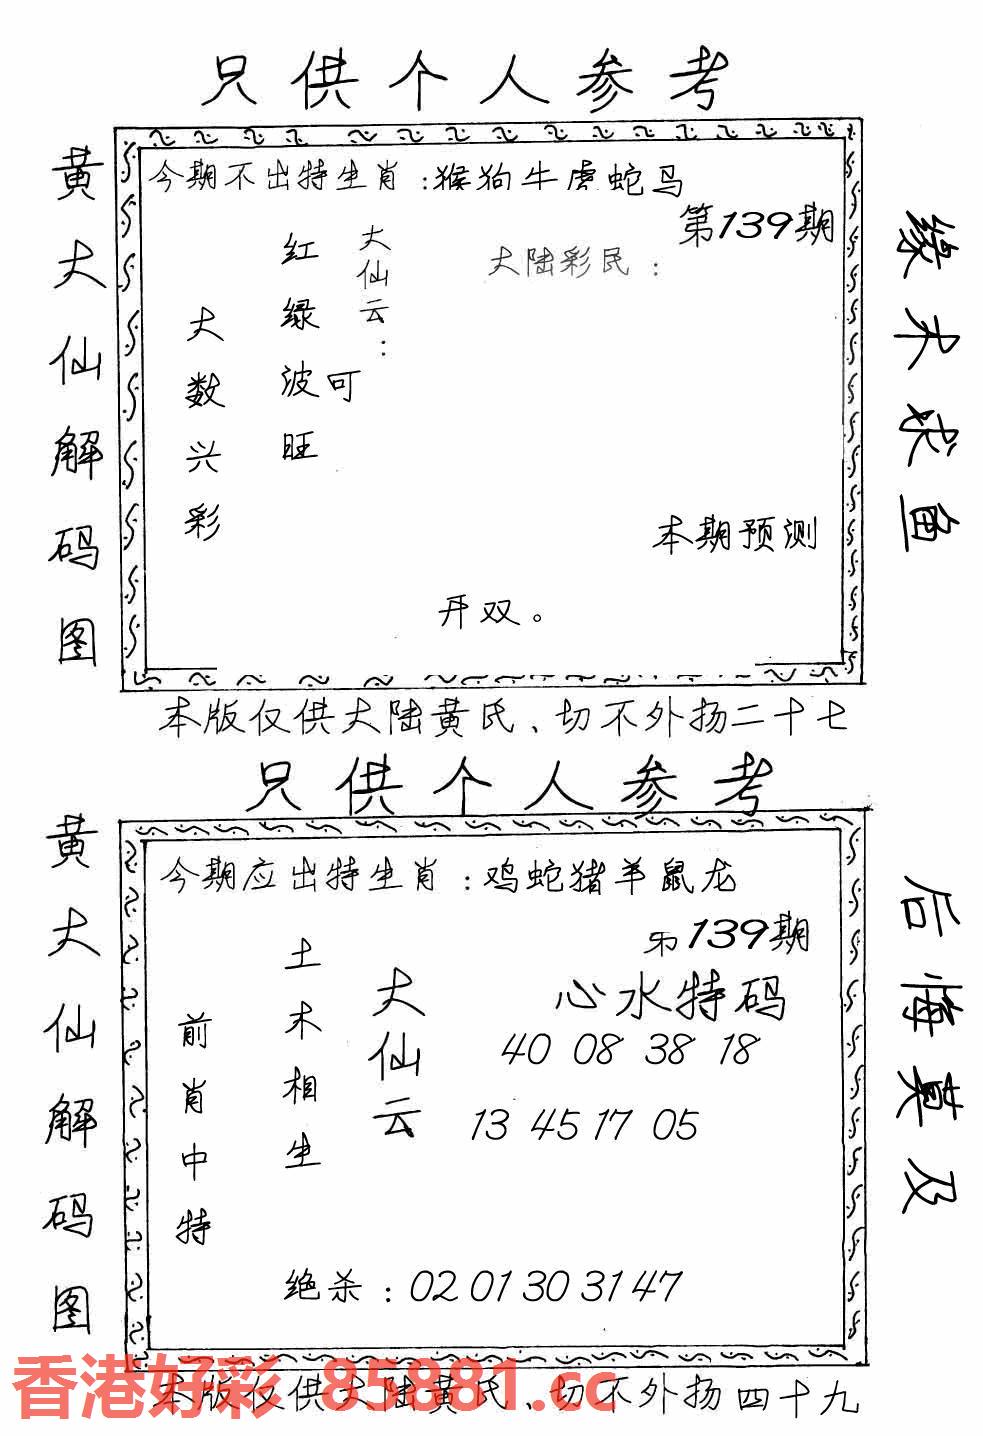 只供个人参考
黄大仙解码图
今期不出特生肖:猴狗牛虎蛇马
第139期
大陆彩民:
大仙云:
红绿波可旺
大数兴彩
本期预测
开双。
缘木求鱼
本版仅供大陆黄氏、切不外扬二十七
只供个人参考
黄大仙解码图
今期应出特生肖:鸡蛇猪羊鼠龙
第139期
心水特码
40 08 38 18
13 45 17 05
大仙云
土木相生
前肖中特
绝杀:02 01 30 31 47
后悔莫及
香港好彩 85881.cc
本版仅供大陆黄氏、切不外扬四十九